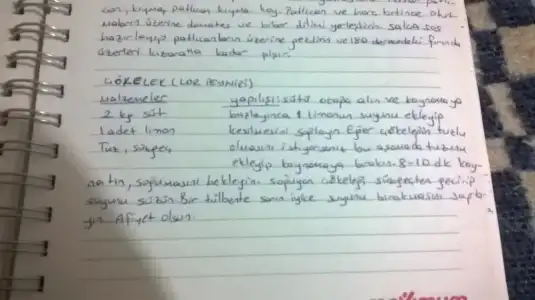 kıyma, patlıcan kıyma koy. Patlıcan ve harç bitince
üzerine domates ve biber dilimi yerleştirin. Salça sos
hazırlayıp patlıcanların üzerine gezdirin ve 180 derecedeki fırında
üzerleri kızarana kadar pişir.
ÇÖKELEK (LOR PEYNİRİ)
Malzemeler
yapılışı: sütü ocağa alın ve kaynamaya
2 kg süt
başlayınca 1 limonun suyunu ekleyip
1 adet limon
kesilmesini sağlayın. Eğer çökeleğin tuzlu
Tuz, süzgeç
olmasını istiyorsanız bu aşamada tuzunu
ekleyip kaynamaya bırakın. 8-10 dk kay-
natın, soğumasını bekleyin. soğuyan çökeleği süzgeçten geçirip
suyunu süzün. Bir tülbente sarın iyice suyunu bırakmasını sağla-
yın. Afiyet olsun.